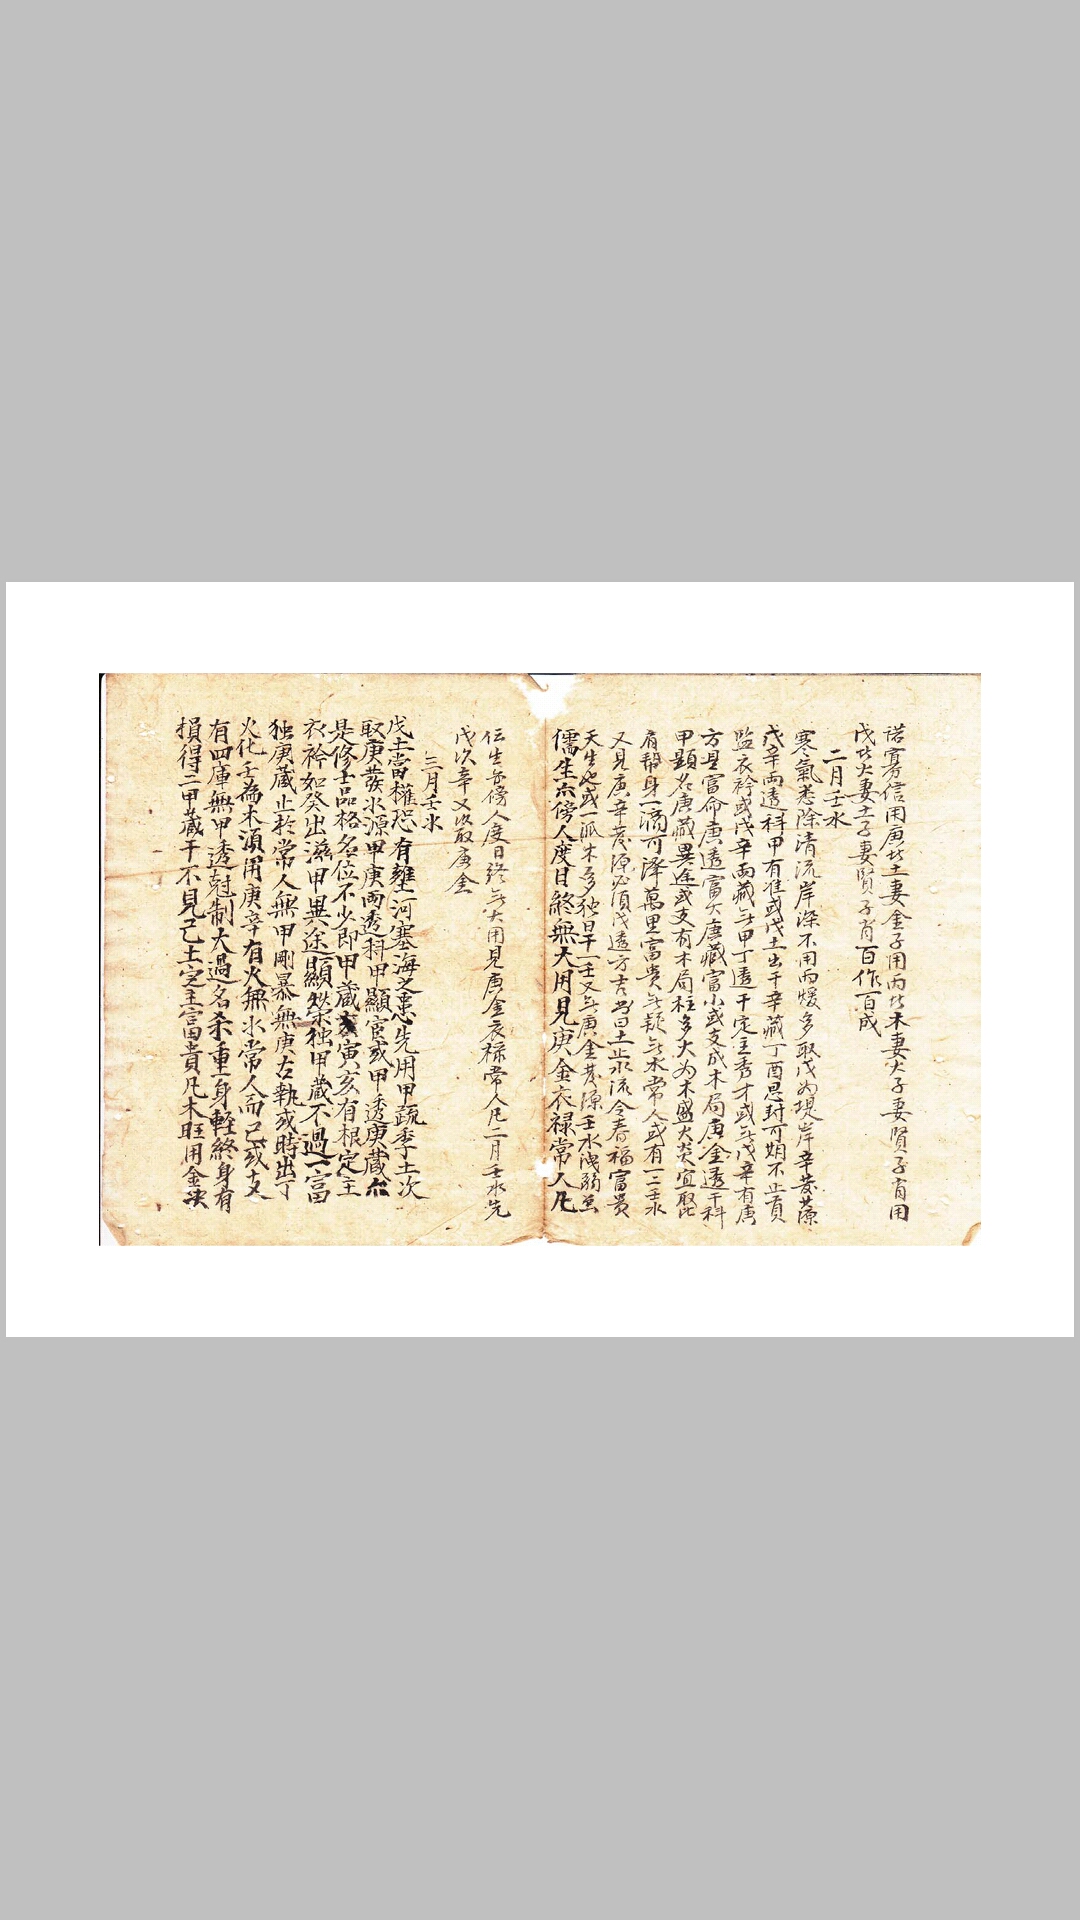 諾寡信用庚者土妻金子用丙者木妻火子妻賢子肖用
戊者火妻土子妻賢子肖百作百成
二月壬水
寒氣悉除清流岸深不用丙煖多取戊為堤岸辛發源
戊辛兩透科甲有准或戊土出干辛藏丁酉恩封可期不止貢
監衣衿或戊辛兩藏無甲丁透干定主秀才或無戊辛有庚
方是富命庚透富大庚藏富小或支成木局庚金透干科
甲顯名庚藏異途或支有木局柱多火為木盛火炎宜取比
肩幫身一滴可澤萬里富貴無疑無水常人或有一二壬水
又見庚辛發源必須戊透方吉書曰土止水流全春福富貴
天生也或一派木多独旱一壬又無庚金發源壬水洩弱
儒生亦傍人度日終無大用見庚金衣禄常人凡
任生亦傍人度日終無大用見庚金衣禄常人凡二月壬水先
戊次辛又次取庚金
三月壬水
戊土當權恐有壅河塞海之患先用甲疏季土次
取庚發水源甲庚兩透科甲顯宦或甲透庚藏亦
是修士品格名位不少即甲藏寅亥有根定主
衣衿如癸出滋甲異途顯榮独甲藏不過一富
独庚藏止於常人無甲剛暴無庚古執或時出丁
火化壬為木湏用庚辛有火無水常人而已或支
有四庫無甲透尅制大過名杀重身軽終身有
損得二甲藏干不見己土定主富貴凡木旺用金次